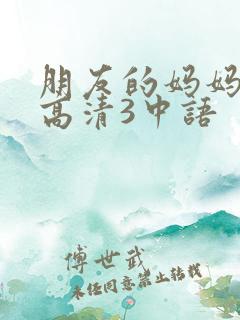 朋友的妈妈
高清3中語
傅世武
未经同意禁止转载